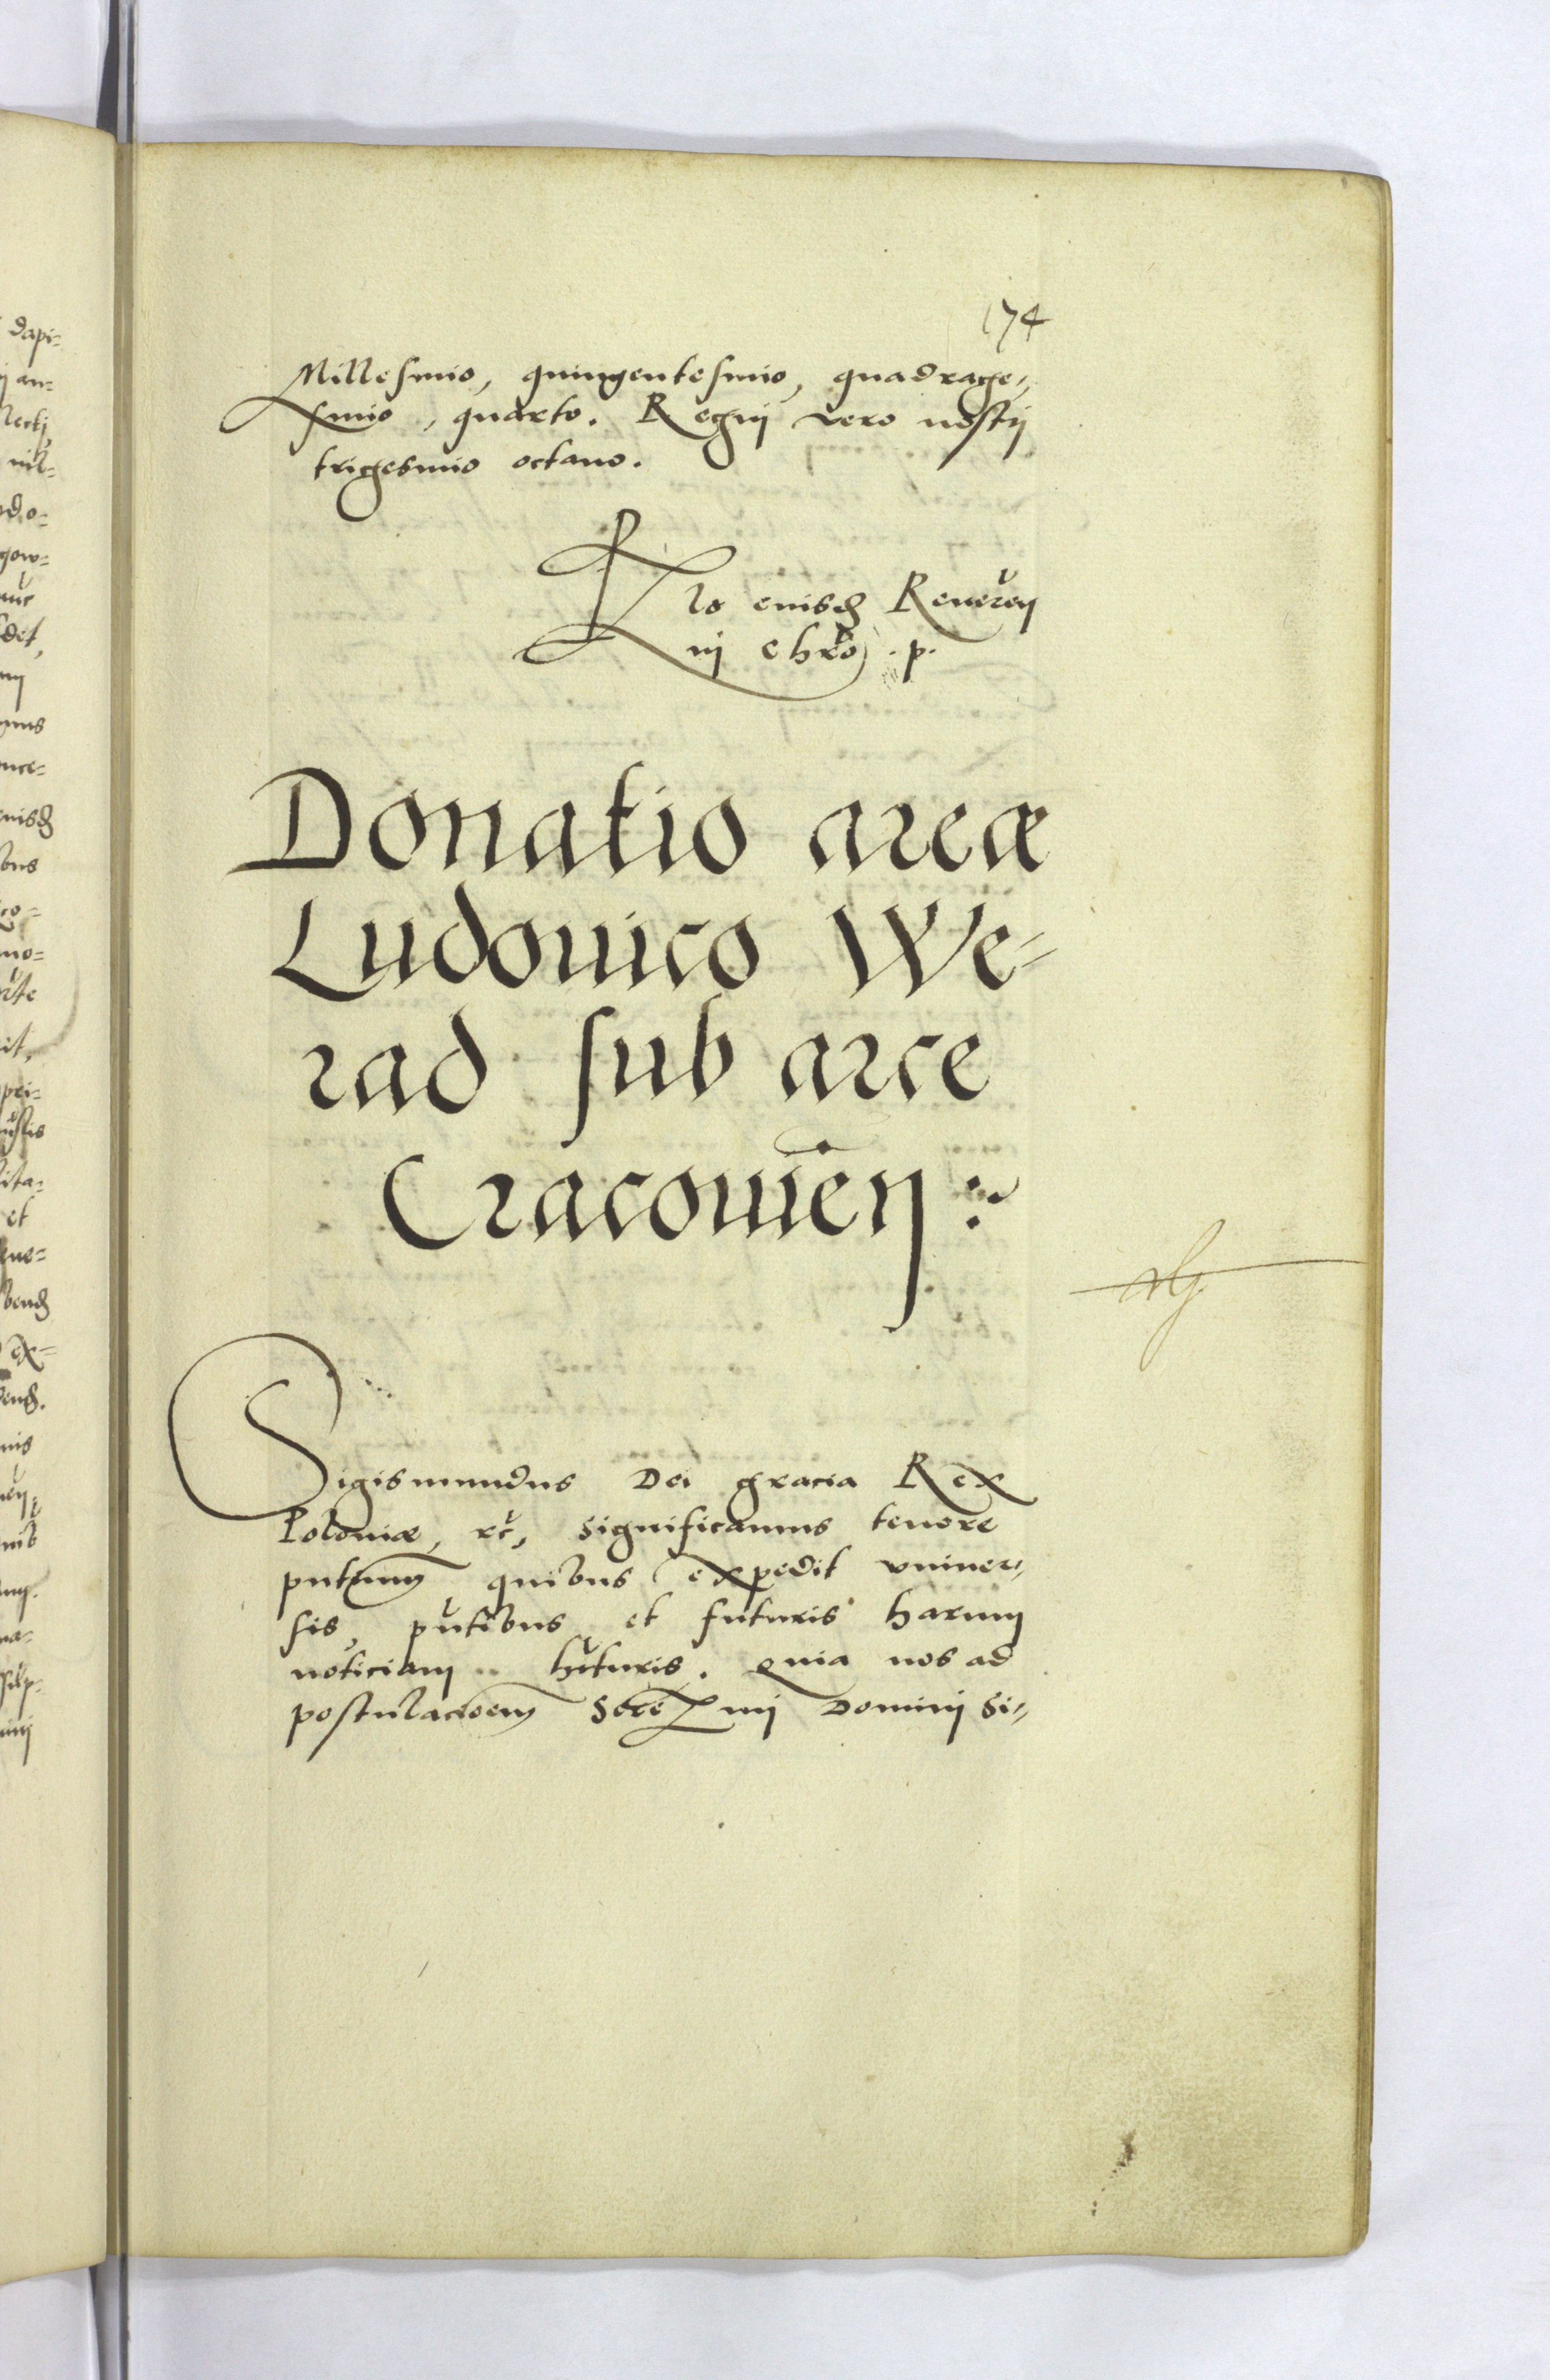 174
Millesimo, quingentesimo, quadrage-
simo, quarto. Regni vero nostri
trigesimo octavo.
Rlo eiusdem Reveren
in chro .p.
Donatio areæ
Ludouico We=
rad sub arce
Cracouien:
Sigismundus Dei gracia Rex
Poloniæ, etc, Significamus tenore
pntium quibus expedit vniuer-
sis, pntibus et futuris harum
noticiam hituris. Quia nos ad
postulacioem Sere mi Domini Si-